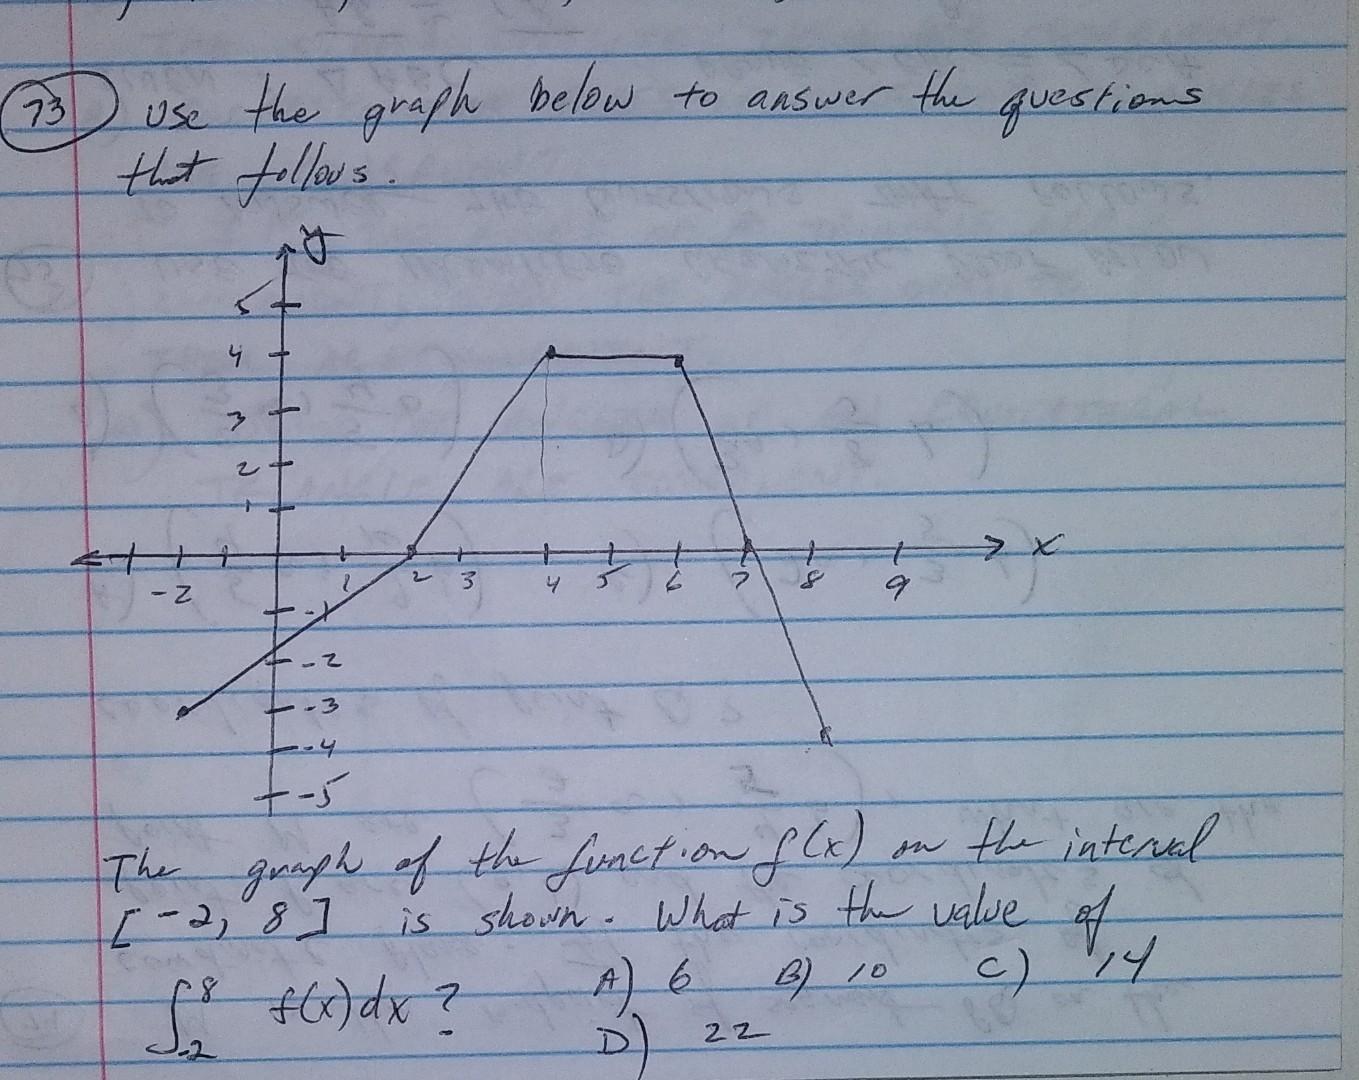 73 Use the graph below to answer the questions
that follows.
y
5
4
3
2
1
-2 1 2 3 4 5 6 7 8 9 x
-1
-2
-3
-4
-5
The graph of the function f(x) on the interval
[-2, 8] is shown. What is the value of
∫₋₂⁸ f(x)dx? A) 6 B) 10 C) 14
D) 22